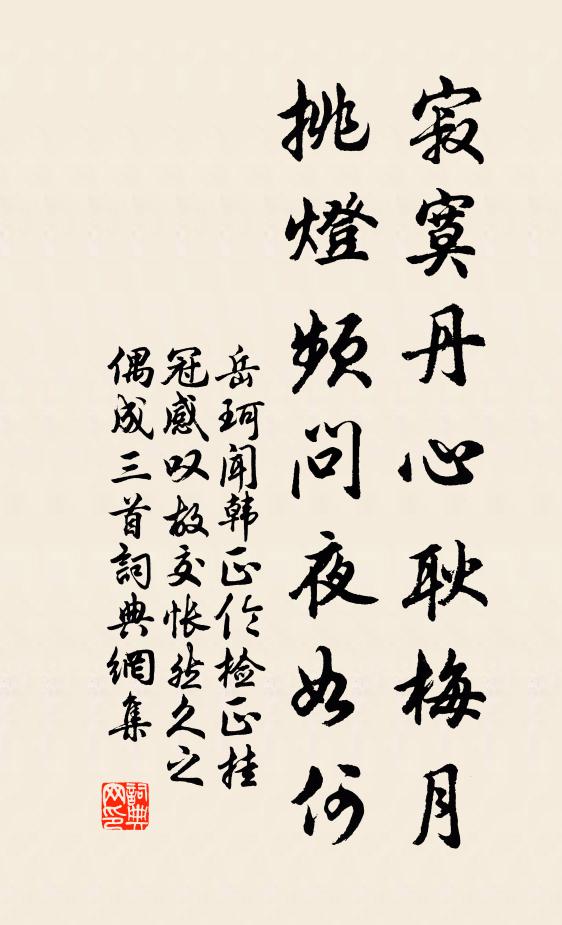 寂寞丹心耿梅月
挑燈頻问夜如何
岳珂闻韩正伦检正挂
冠感叹故交怅然久之
偶成三首詞典網集
詞典网印